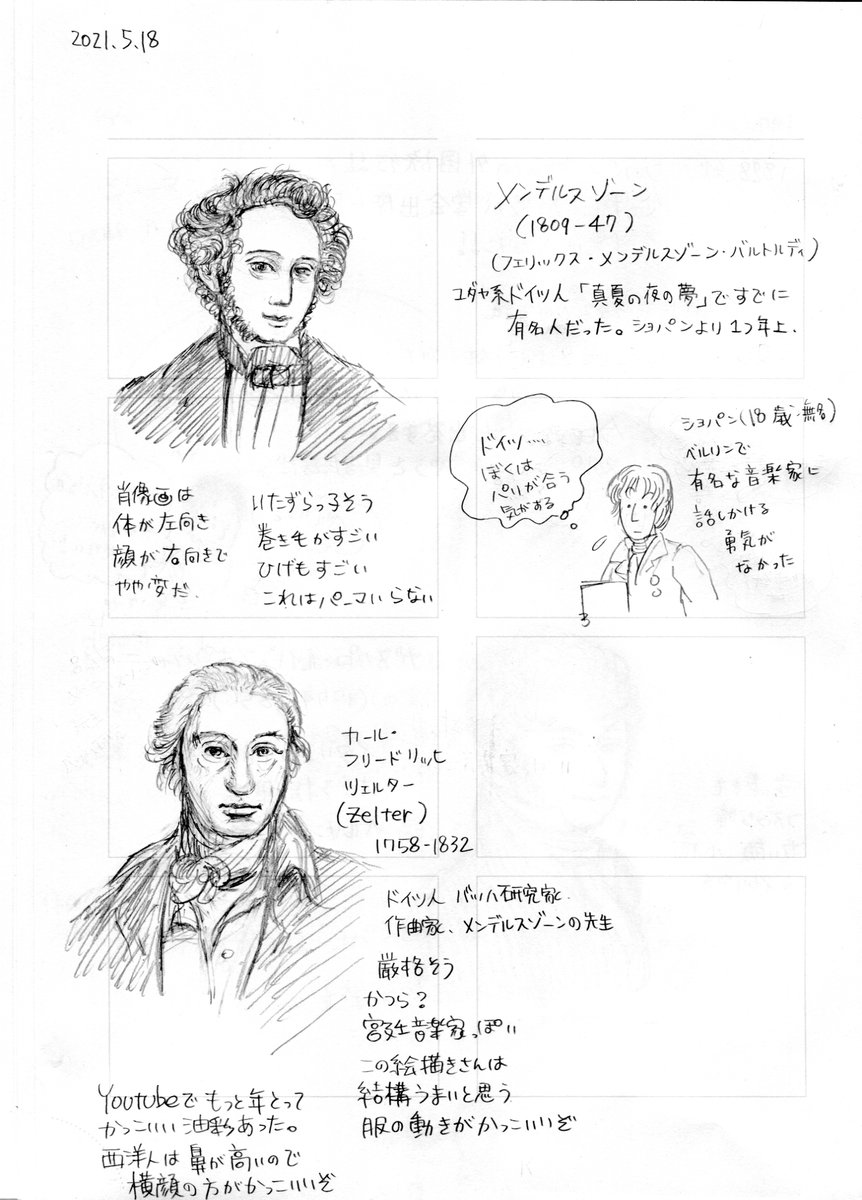 2021.5.18
メンデルスゾーン
(1809-47)
(フェリックス・メンデルスゾーン・バルトルディ)
ユダヤ系ドイツ人「真夏の夜の夢」ですでに
有名人だった。ショパンより1つ年上.
肖像画は
体が左向き
顔が右向きで
やや変だ.
いたずらっ子そう
巻き毛がすごい
ひげもすごい
これはパーマいらない
ドイツ....
ぼくは
パリが合う
気がする
ショパン(18歳・無名)
ベルリンで
有名な音楽家に
話しかける
勇気が
なかった
カール・
フリードリッヒ
ツェルター
(Zelter)
1758-1832
ドイツ人 バッハ研究家.
作曲家、メンデルスゾーンの先生
厳格そう
かつら?
宮廷音楽家っぽい
この絵描きさんは
結構うまいと思う
服の動きがかっこいいぞ
Youtubeでもっと年とって
かっこいい油彩あった。
西洋人は鼻が高いので
横顔の方がかっこいいぞ